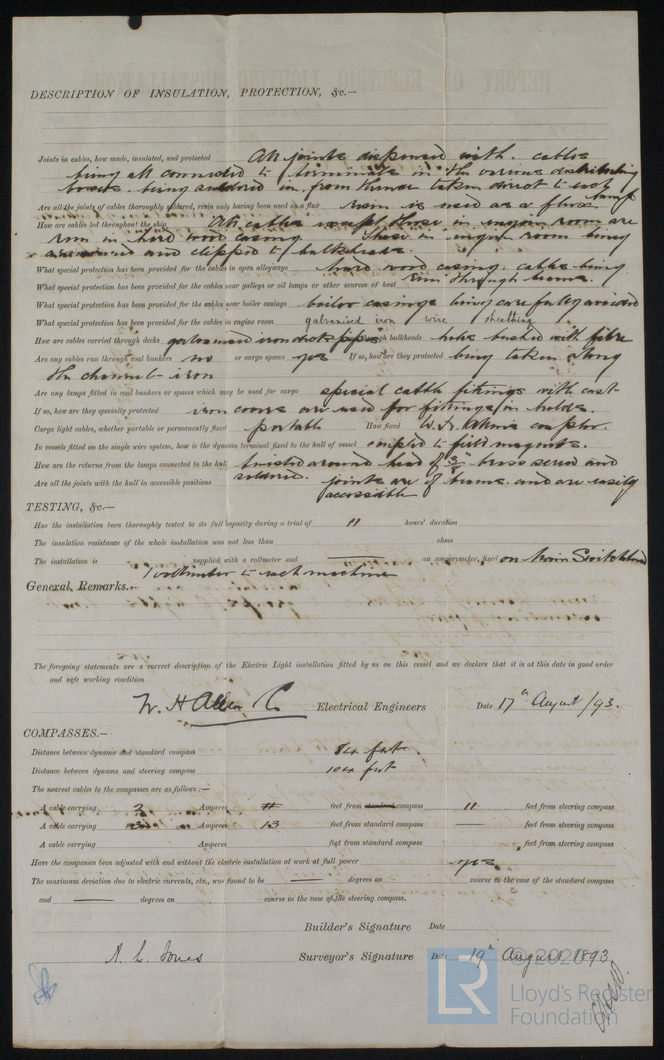 DESCRIPTION OF INSULATION, PROTECTION, &c.—
Joints in cables, how made, insulated, and protected All joints dispensed with. cables
being all connected to terminate in the various distributing
boxes. being soldered in. from thence taken direct to each lamp
Are all the joints of cables thoroughly soldered, resin only having been used as a flux resin is used as a fluxe
How are cables led throughout the ship All cables except those in engine room are
run in hard wood casing. those in engine room being
armoured and clipped to bulkheads.
What special protection has been provided for the cables in open alleyways hard wood casing. cables being
What special protection has been provided for the cables near galleys or oil lamps or other sources of heat run through same.
What special protection has been provided for the cables near boiler casings boiler casings being carefully avoided
What special protection has been provided for the cables in engine room galvanised iron wire sheathing
How are cables carried through decks galvanised iron deck pipes through bulkheads holes bushed with fibre
Are any cables run through coal bunkers no or cargo spaces yes If so, how are they protected being taken along
the channel iron
Are any lamps fitted in coal bunkers or spaces which may be used for cargo special cable fittings with cast
If so, how are they specially protected iron covers are used for fittings in holds.
Cargo light cables, whether portable or permanently fixed portable How fixed
In vessels fitted on the single wire system, how is the dynamo terminal fixed to the hull of vessel coupled to field magnets.
How are the returns from the lamps connected to the hull twisted around head of brass screw and
soldered.
Are all the joints with the hull in accessible positions joints are of brass and are easily
accessible
TESTING, &c.—
Has the installation been thoroughly tested to its full capacity during a trial of 11 hours' duration
The insulation resistance of the whole installation was not less than ohms
The installation is supplied with a voltmeter and — an amperemeter, fixed on Main Switchboard
Voltmeter to each machine
General Remarks.
The foregoing statements are a correct description of the Electric Light installation fitted by us on this vessel and we declare that it is at this date in good order
and safe working condition
W. H Allen Co Electrical Engineers Date 17th August/93.
COMPASSES.—
Distance between dynamo and standard compass 84 feet.
Distance between dynamo and steering compass 104 feet
The nearest cables to the compasses are as follows:—
A cable carrying 2 Amperes feet from standard compass 11 feet from steering compass
A cable carrying 3 Amperes 13 feet from standard compass — feet from steering compass
A cable carrying Amperes feet from standard compass feet from steering compass
Have the compasses been adjusted with and without the electric installation at work at full power yes
The maximum deviation due to electric currents, etc., was found to be — degrees on course in the case of the standard compass
and — degrees on course in the case of the steering compass.
Builder's Signature Date
A. L. Jones Surveyor's Signature Date 19th August 1893
© 2020
LR
Lloyd's Register
Foundation